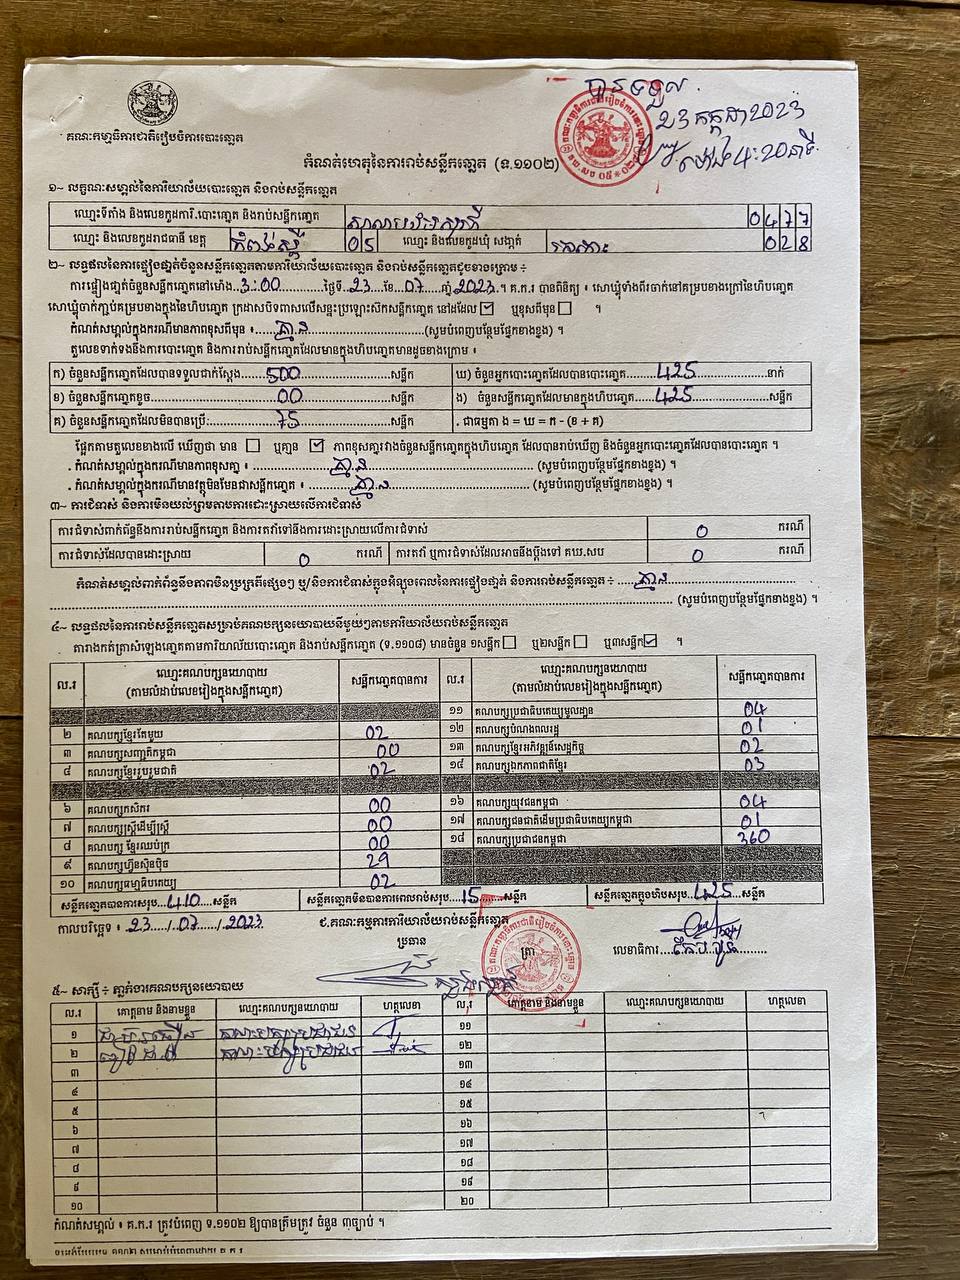 បានទទួល
23 កក្កដា 2023
ម៉ោង 4:20 នាទី
គណៈកម្មាធិការជាតិរៀបចំការបោះឆ្នោត
កំណត់ហេតុនៃការរាប់សន្លឹកឆ្នោត (ទ.១១០២)
១~ លក្ខណៈសម្គាល់នៃការិយាល័យបោះឆ្នោត និងរាប់សន្លឹកឆ្នោត
ឈ្មោះទីតាំង និងលេខកូដការិ.បោះឆ្នោត និងរាប់សន្លឹកឆ្នោត 0477
ឈ្មោះ និងលេខកូដរាជធានី ខេត្ត កំពង់ស្ពឺ 05 ឈ្មោះ និងលេខកូដឃុំ សង្កាត់ 028
២~ លទ្ធផលនៃការផ្ទៀងផ្ទាត់ចំនួនសន្លឹកឆ្នោតតាមការិយាល័យបោះឆ្នោត និងរាប់សន្លឹកឆ្នោតដូចខាងក្រោម ÷
ការផ្ទៀងផ្ទាត់ចំនួនសន្លឹកឆ្នោតនៅម៉ោង 3:00 ថ្ងៃទី 23 ខែ 07 ឆ្នាំ 2023 ។ គ.ក.រ បានពិនិត្យ ៖ សោឃ្លុំទាំងពីរចាក់នៅគម្របខាងក្រៅនៃហិបឆ្នោត
សោឃ្លុំចាក់ភ្ជាប់គម្របខាងក្នុងនៃហិបឆ្នោត ក្រដាសបិទពាសលើសន្ទះប្រឡោះស៊កសន្លឹកឆ្នោត នៅដដែល ☑ ឬខុសពីមុន ☐ ។
កំណត់សម្គាល់ក្នុងករណីមានភាពខុសពីមុន ៖ គ្មាន (សូមបំពេញបន្ថែមផ្នែកខាងខ្នង) ។
តួលេខទាក់ទងនឹងការបោះឆ្នោត និងការរាប់សន្លឹកឆ្នោតដែលមានក្នុងហិបឆ្នោតមានដូចខាងក្រោម ៖
ក) ចំនួនសន្លឹកឆ្នោតដែលបានទទួលជាក់ស្តែង 500 សន្លឹក ឃ) ចំនួនអ្នកបោះឆ្នោតដែលបានបោះឆ្នោត 425 នាក់
ខ) ចំនួនសន្លឹកឆ្នោតខូច 00 សន្លឹក ង) ចំនួនសន្លឹកឆ្នោតដែលមានក្នុងហិបឆ្នោត 425 សន្លឹក
គ) ចំនួនសន្លឹកឆ្នោតដែលមិនបានប្រើ 75 សន្លឹក . ជាធម្មតា ង = ឃ = ក - (ខ + គ)
ផ្អែកតាមតួលេខខាងលើ ឃើញថា មាន ☐ ឬគ្មាន ☑ ភាពខុសគ្នារវាងចំនួនសន្លឹកឆ្នោតក្នុងហិបឆ្នោត ដែលបានរាប់ឃើញ និងចំនួនអ្នកបោះឆ្នោតដែលបានបោះឆ្នោត ។
. កំណត់សម្គាល់ក្នុងករណីមានភាពខុសគ្នា ៖ គ្មាន (សូមបំពេញបន្ថែមផ្នែកខាងខ្នង) ។
. កំណត់សម្គាល់ក្នុងករណីមានវត្ថុមិនមែនជាសន្លឹកឆ្នោត ៖ គ្មាន (សូមបំពេញបន្ថែមផ្នែកខាងខ្នង) ។
៣~ ការជំទាស់ និងការមិនយល់ព្រមតាមការដោះស្រាយលើការជំទាស់
ការជំទាស់ពាក់ព័ន្ធនឹងការរាប់សន្លឹកឆ្នោត និងការតវ៉ាទៅនឹងការដោះស្រាយលើការជំទាស់ 0 ករណី
ការជំទាស់ដែលបានដោះស្រាយ 0 ករណី ការតវ៉ា ឬការជំទាស់ដែលអាចនឹងប្តឹងទៅ គឃ.សប 0 ករណី
កំណត់សម្គាល់ពាក់ព័ន្ធនឹងភាពមិនប្រក្រតីផ្សេងៗ ឬ/និងការជំទាស់ក្នុងអំឡុងពេលនៃការផ្ទៀងផ្ទាត់ និងការរាប់សន្លឹកឆ្នោត ÷ គ្មាន
(សូមបំពេញបន្ថែមផ្នែកខាងខ្នង) ។
៤~ លទ្ធផលនៃការរាប់សន្លឹកឆ្នោតសម្រាប់គណបក្សនយោបាយនីមួយៗតាមការិយាល័យរាប់សន្លឹកឆ្នោត
តារាងកត់ត្រាសំឡេងឆ្នោតតាមការិយាល័យបោះឆ្នោត និងរាប់សន្លឹកឆ្នោត (ទ.១១០៨) មានចំនួន ១សន្លឹក ☐ ឬ២សន្លឹក ☐ ឬ៣សន្លឹក ☑ ។
ល.រ ឈ្មោះគណបក្សនយោបាយ (តាមលំដាប់លេខរៀងក្នុងសន្លឹកឆ្នោត) សន្លឹកឆ្នោតបានការ ល.រ ឈ្មោះគណបក្សនយោបាយ (តាមលំដាប់លេខរៀងក្នុងសន្លឹកឆ្នោត) សន្លឹកឆ្នោតបានការ
១១ គណបក្សប្រជាធិបតេយ្យមូលដ្ឋាន 04
២ គណបក្សខ្មែរតែមួយ 02 ១២ គណបក្សបំណងពលរដ្ឋ 01
៣ គណបក្សសញ្ជាតិកម្ពុជា 00 ១៣ គណបក្សខ្មែរអភិវឌ្ឍន៍សេដ្ឋកិច្ច 02
៤ គណបក្សខ្មែររួបរួមជាតិ 02 ១៤ គណបក្សឯកភាពជាតិខ្មែរ 03
៦ គណបក្សកសិករ 00 ១៦ គណបក្សយុវជនកម្ពុជា 04
៧ គណបក្សស្ត្រីដើម្បីស្ត្រី 00 ១៧ គណបក្សជនជាតិដើមប្រជាធិបតេយ្យកម្ពុជា 01
៨ គណបក្ស ខ្មែរឈប់ក្រ 00 ១៨ គណបក្សប្រជាជនកម្ពុជា 360
៩ គណបក្សហ្វ៊ុនស៊ិនប៉ិច 29
១០ គណបក្សធម្មាធិបតេយ្យ 02
សន្លឹកឆ្នោតបានការសរុប 410 សន្លឹក សន្លឹកឆ្នោតមិនបានការពេលរាប់សរុប 15 សន្លឹក សន្លឹកឆ្នោតក្នុងហិបសរុប 425 សន្លឹក
កាលបរិច្ឆេទ ៖ 23 / 07 / 2023 ជ.គណៈកម្មការការិយាល័យរាប់សន្លឹកឆ្នោត
ប្រធាន ត្រា លេខាធិការ
៥~ សាក្សី ÷ ភ្នាក់ងារគណបក្សនយោបាយ
ល.រ គោត្តនាម និងនាមខ្លួន ឈ្មោះគណបក្សនយោបាយ ហត្ថលេខា ល.រ គោត្តនាម និងនាមខ្លួន ឈ្មោះគណបក្សនយោបាយ ហត្ថលេខា
១ គណបក្សប្រជាជន ១១
២ គណបក្សប្រជាជន ១២
៣ ១៣
៤ ១៤
៥ ១៥
៦ ១៦
៧ ១៧
៨ ១៨
៩ ១៩
១០ ២០
កំណត់សម្គាល់ ៖ គ.ក.រ ត្រូវបំពេញ ទ.១១០២ ឱ្យបានត្រឹមត្រូវ ចំនួន ៣ច្បាប់ ។